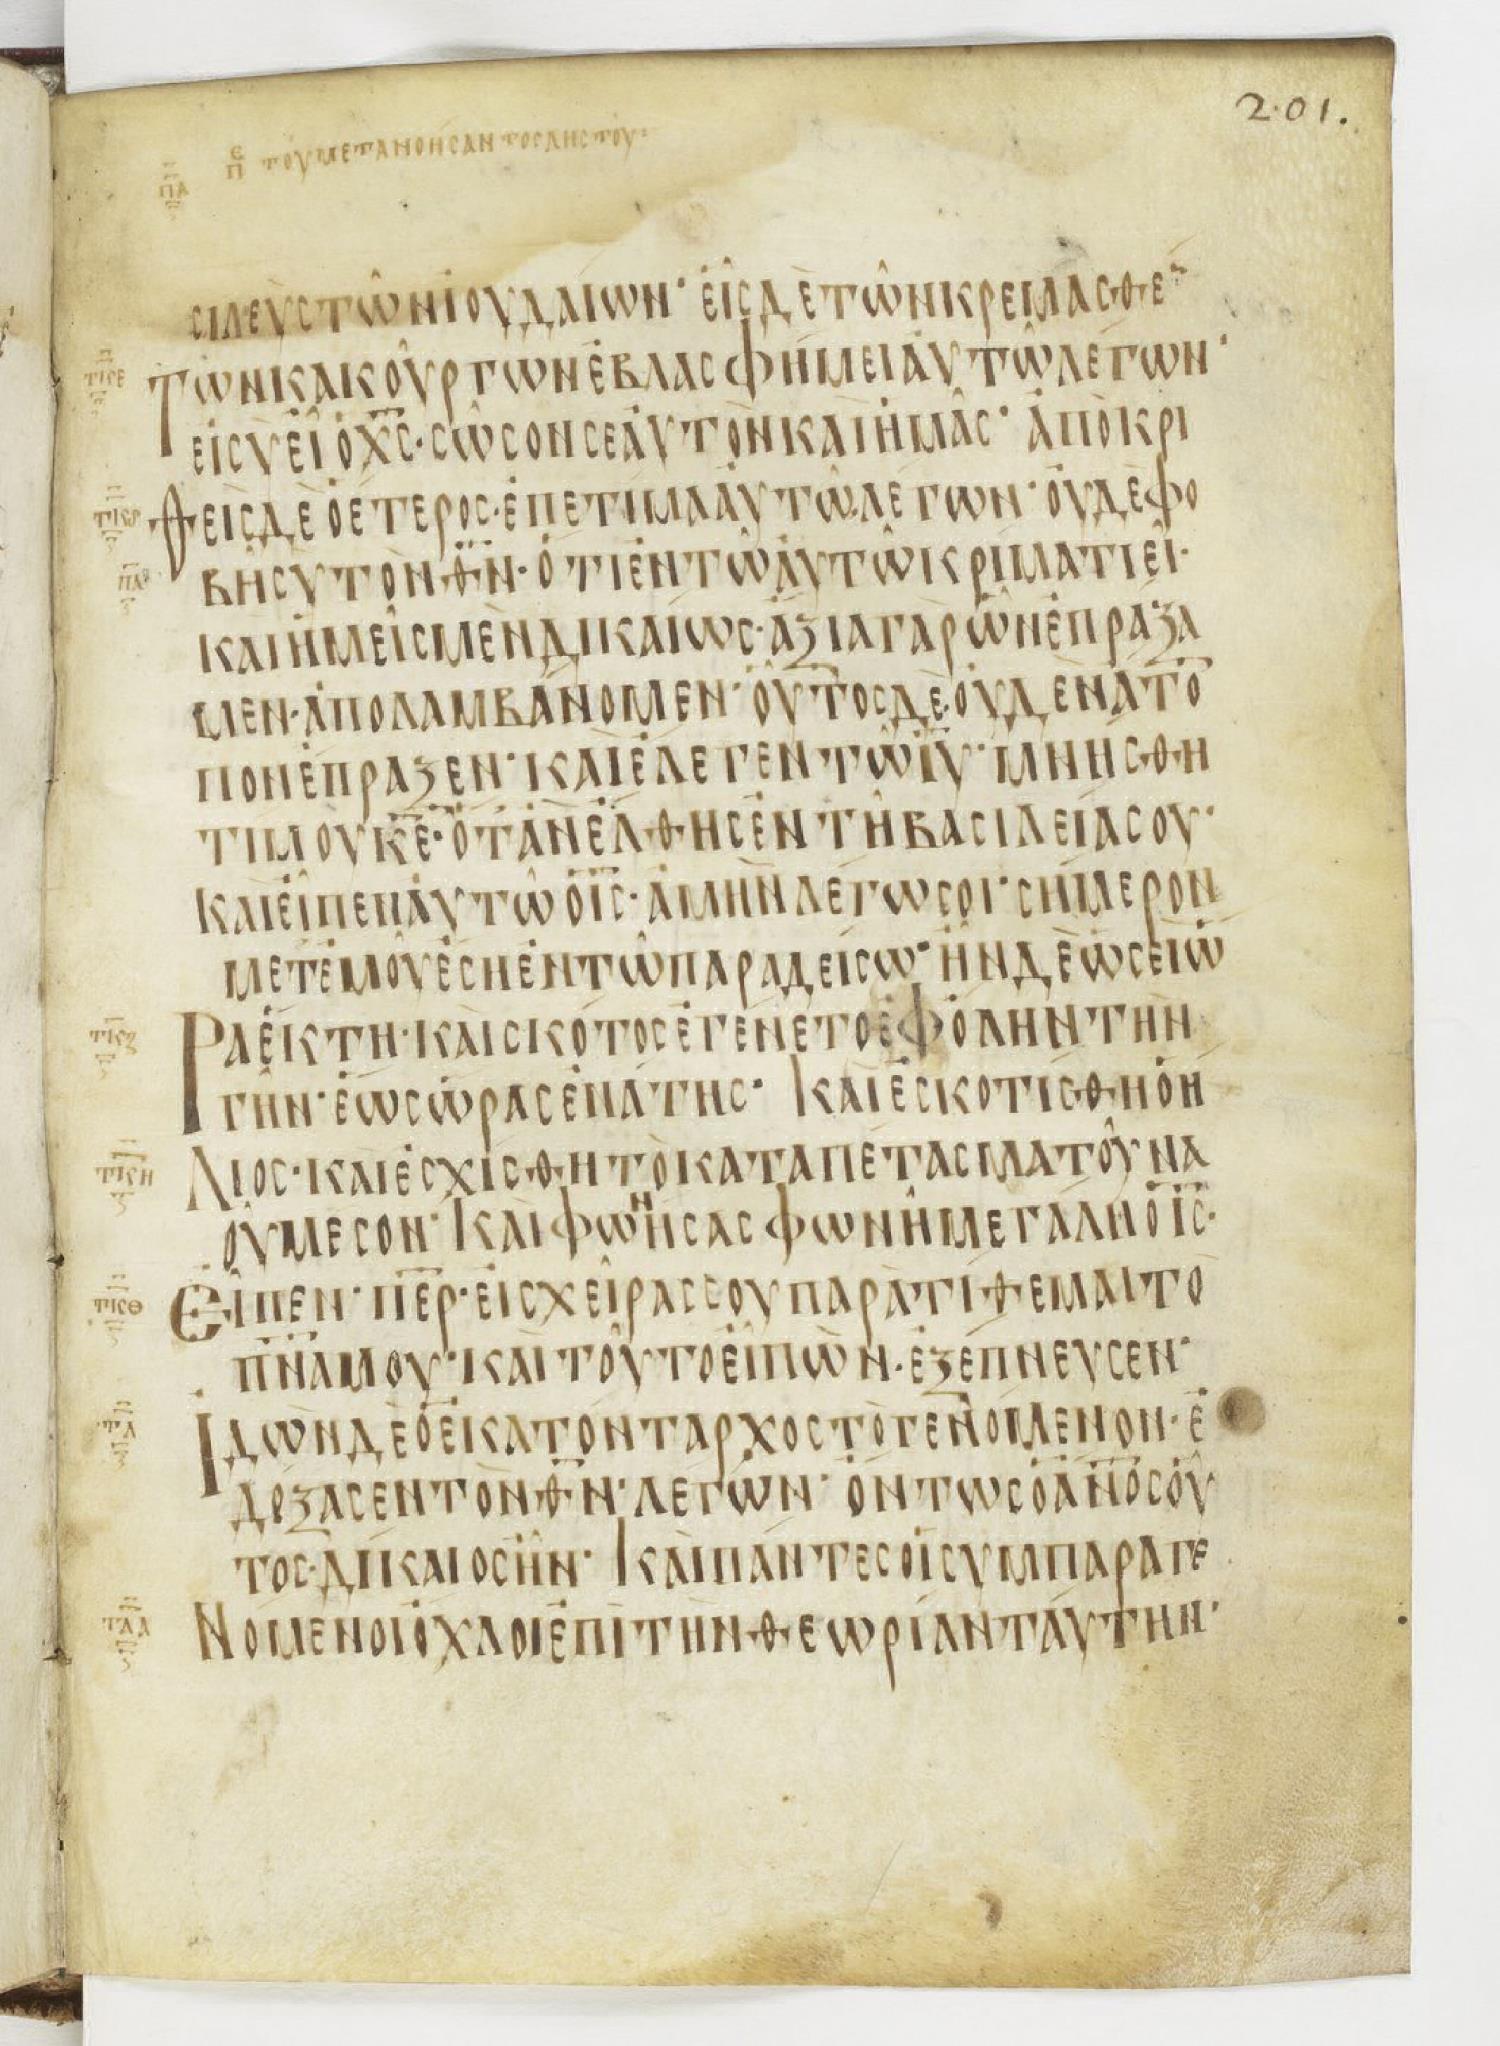 201.
ΠΑ ΕΠ ΤΟΥ ΜΕΤΑΝΟΗΣΑΝΤΟΣ ΛΗΣΤΟΥ·
ϹΙΛΕῪϹΤΩ͂ΝΪΟΥΔΑΙΩΝ· ΕἿϹΔῈΤΩ͂ΝΚΡΕΜΑϹΘΕ
ΤΩΝΚΑΚΟΎΡΓΩΝἘΒΛΑϹΦΉΜΕΙΑΥ̓ΤΩ͂ΛΕΓΩΝ·
ΕΙϹῪΕἾὉΧ̅Ϲ̅·ϹΩ͂ϹΟΝϹΕΑΥΤῸΝΚΑΙἩΜΑ͂Ϲ· ἈΠΟΚΡΙ
ΘΕΙϹΔΕὉἝΤΕΡΟϹ·ἘΠΕΤΙΜΑΑΥ̓ΤΩ͂ΛΕΓΩΝ· ΟΥΔΕΦΟ
ΒΗϹΥΤῸΝΘ̅Ν̅·ὍΤΙἘΝΤΩ͂ΑΥ̓ΤΩ͂ΚΡΙΜΑΤΙΕἾ·
ΚΑΙἩΜΕΙ͂ϹΜῈΝΔΙΚΑΙΩϹ·ἌΞΙΑΓΑΡὯΝἘΠΡΑΞΑ
ΜΕΝ·ἈΠΟΛΑΜΒΆΝΟΜΕΝ· ΟὟΤΟϹΔΕ·ΟΥ̓ΔΕΝΆΤΟ
ΠΟΝἘΠΡΑΞΕΝ· ΚΑΙἜΛΕΓΕΝΤΩ͂Ι̅Υ̅· ΜΝΗϹΘΗ
ΤΙΜΟΥΚ̅Ε̅·ὍΤΑΝἜΛΘΗϹἘΝΤΗ͂ΒΑϹΙΛΕΙΑϹΟΥ·
ΚΑΙΕἾΠΕΝΑΥ̓ΤΩ͂ὉΙ̅Ϲ̅·ἈΜΗΝΛΕΓΩϹΟΙ· ϹΗΜΕΡΟΝ
ΜΕΤἘΜΟΥ͂ἜϹΗἘΝΤΩ͂ΠΑΡΑΔΕΙϹΩ· ἮΝΔῈὩϹΕΙΩ
ΡΑἝΚΤΗ·ΚΑΙϹΚΌΤΟϹἘΓΕΝΕΤΟἘΦΌΛΗΝΤΗΝ
ΓΗ͂Ν·ἝΩϹὩΡΑϹἘΝΑΤΗϹ· ΚΑΙἘϹΚΟΤΙϹΘΗὉΗ
ΛΙΟϹ·ΚΑΙἘϹΧΙϹΘΗΤῸΚΑΤΑΠΕΤΑϹΜΑΤΟΥ͂ΝΑ
ΟΥΜΕϹΟΝ· ΚΑΙΦΩΝΗϹΑϹΦΩΝΗ͂ΜΕΓΑΛΗὉΙ̅Ϲ̅·
ΕἾΠΕΝ· Π̅Ε̅Ρ̅·ΕἸϹΧΕΙ͂ΡΑϹϹΟΥΠΑΡΑΤΙΘΕΜΑΙΤΟ
Π̅Ν̅Α̅ΜΟΥ· ΚΑΙΤΟΥ͂ΤΟΕἸΠΩΝ·ἘΞΕΠΝΕΥϹΕΝ·
ἸΔΩΝΔΕὉἙΚΑΤΟΝΤΑΡΧΟϹΤῸΓΕΝΟΜΕΝΟΝ·Ἐ
ΔΟΞΑϹΕΝΤῸΝΘ̅Ν̅·ΛΕΓΩΝ· ὌΝΤΩϹὉΑ̅Ν̅Ο̅ϹΟὟ
ΤΟϹ·ΔΙΚΑΙΟϹἮΝ· ΚΑΙΠΑΝΤΕϹΟἹϹΥΜΠΑΡΑΓΕ
ΝΟΜΕΝΟΙὌΧΛΟΙἘΠΙΤΗΝΘΕΩΡΙΑΝΤΑΥΤΗΝ·